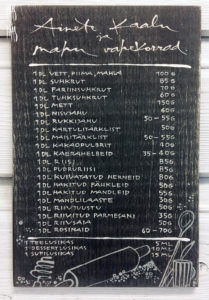 Ainete Kaalu
ja
mahu vahekorrad
1 DL VETT, PIIMA, MAHLA 100G
1 DL SUHKRUT 85G
1 DL FARIINSUHKRUT 70G
1 DL TUHKSUHKRUT 60G
1 DL METT 150G
1 DL NISUJAHU 60G
1 DL RUKKIJAHU 50-55G
1 DL KARTULITÄRKLIST 50G
1 DL MAISITÄRKLIST 50-55G
1 DL KAKAOPULBRIT 40G
1 DL KAERAHELBEID 35-40G
1 DL RIISI 85G
1 DL PUDRURIISI 85G
1 DL KUIVATATUD HERNEID 80G
1 DL HAKITUD PÄHKLEID 50G
1 DL HAKITUD MANDLEID 55G
1 DL MANDLILAASTE 30G
1 DL RIIVJUUSTU 50G
1 DL RIIVITUD PARMESANI 35G
1 DL RIIVSAIA 50G
1 DL ROSINAID 60-70G
1 TEELUSIKAS 5 ML
1 DESSERTLUSIKAS 10 ML
1 SUPILUSIKAS 15 ML